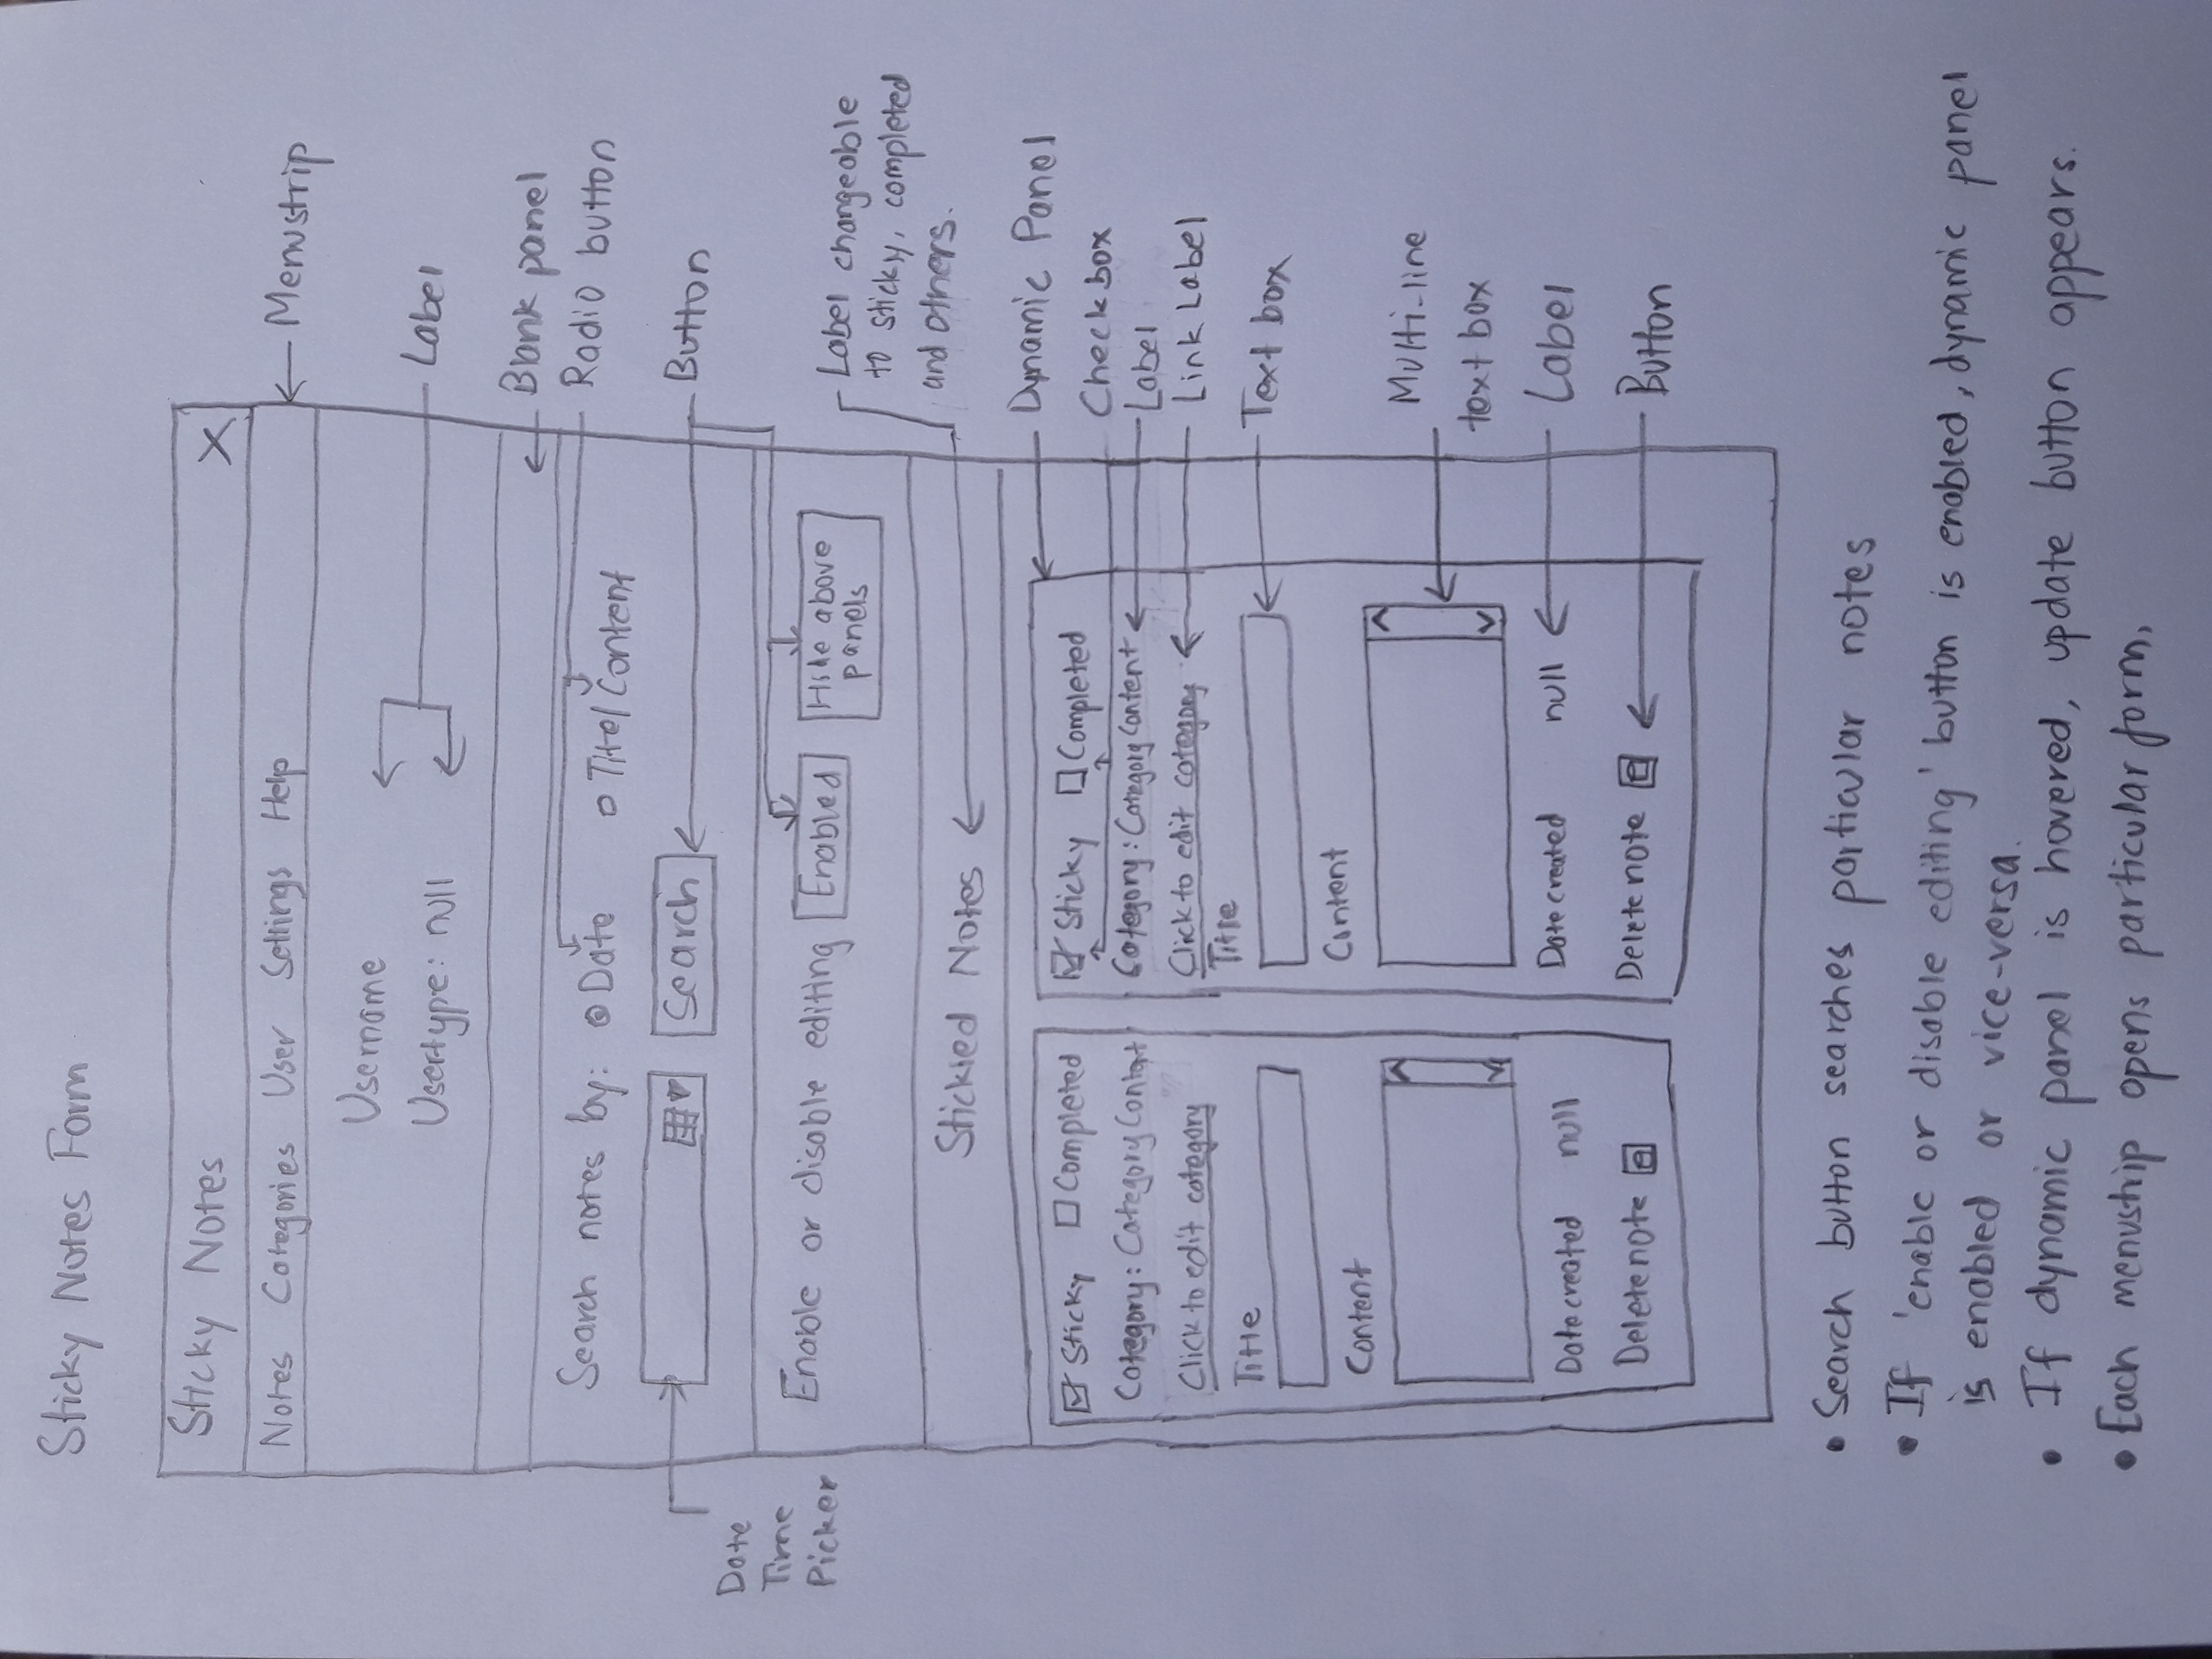 Sticky Notes Form
Sticky Notes X
Notes Categories User Settings Help
Menustrip
Username
Usertype: null
Label
Blank panel
Radio button
Search notes by: Date Titel/Content
Search
Button
Date
Time
Picker
Enable or disable editing Enabled Hide above
panels
Label changeable
to sticky, completed
and others.
Stickied Notes
Dynamic Panel
Sticky Completed
Category: Category Content
Click to edit category
Title
Content
Date created null
Delete note
Sticky Completed
Category: Category Content
Click to edit category
Title
Content
Date created null
Delete note
Check box
Label
Link Label
Text box
Multi-line
text box
Label
Button
• Search button searches particular notes
• If 'enable or disable editing' button is enabled, dynamic panel
is enabled or vice-versa.
• If dynamic panel is hovered, update button appears.
• Each menustrip opens particular form,